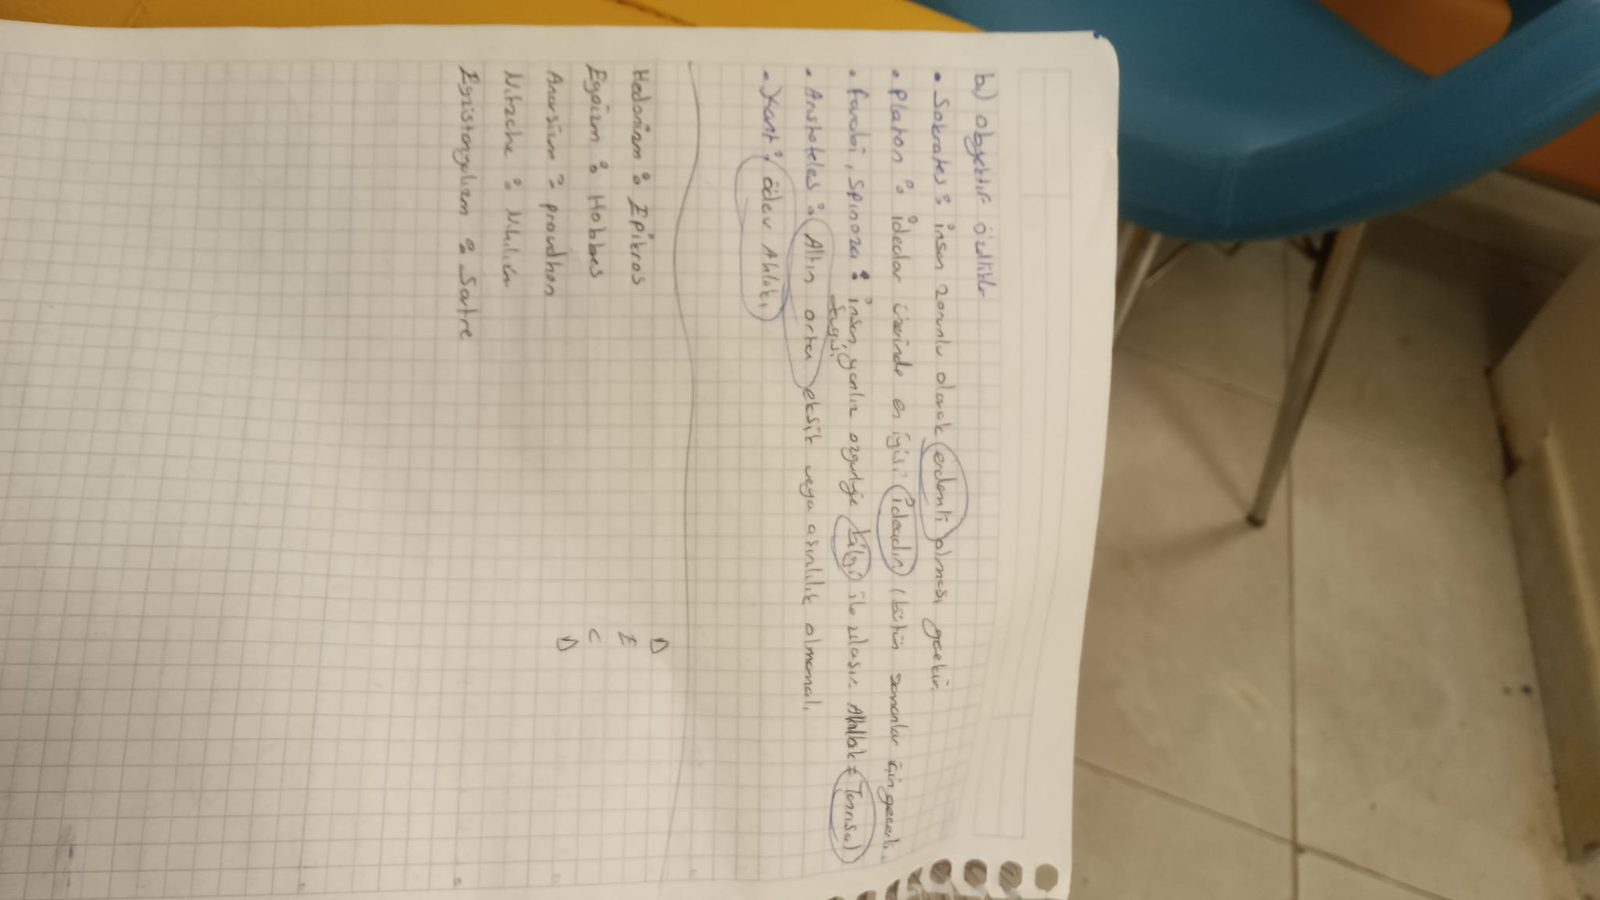 b) objektif özellikler
• Sokrates : insan zorunlu olarak erdemli olması gerekir.
• Platon : idealar üzerinde en iyisi ideadır (bütün zamanlar için geçerli.
• Farabi, Spinoza : insan, yanlız özgürlüğe bilgi ile ulaşır. Ahlak = Tanrısal
sevgisi
• Aristoteles : Altın orta eksik veya aşırılık olmamalı,
• Kant : ödev Ahlakı
Hedonizm : Epikros
Egoizm : Hobbes
Anarsizm : proudhon
Nitzche : Nihilizm
Egzistansyalizm : Sartre
D
E
C
D